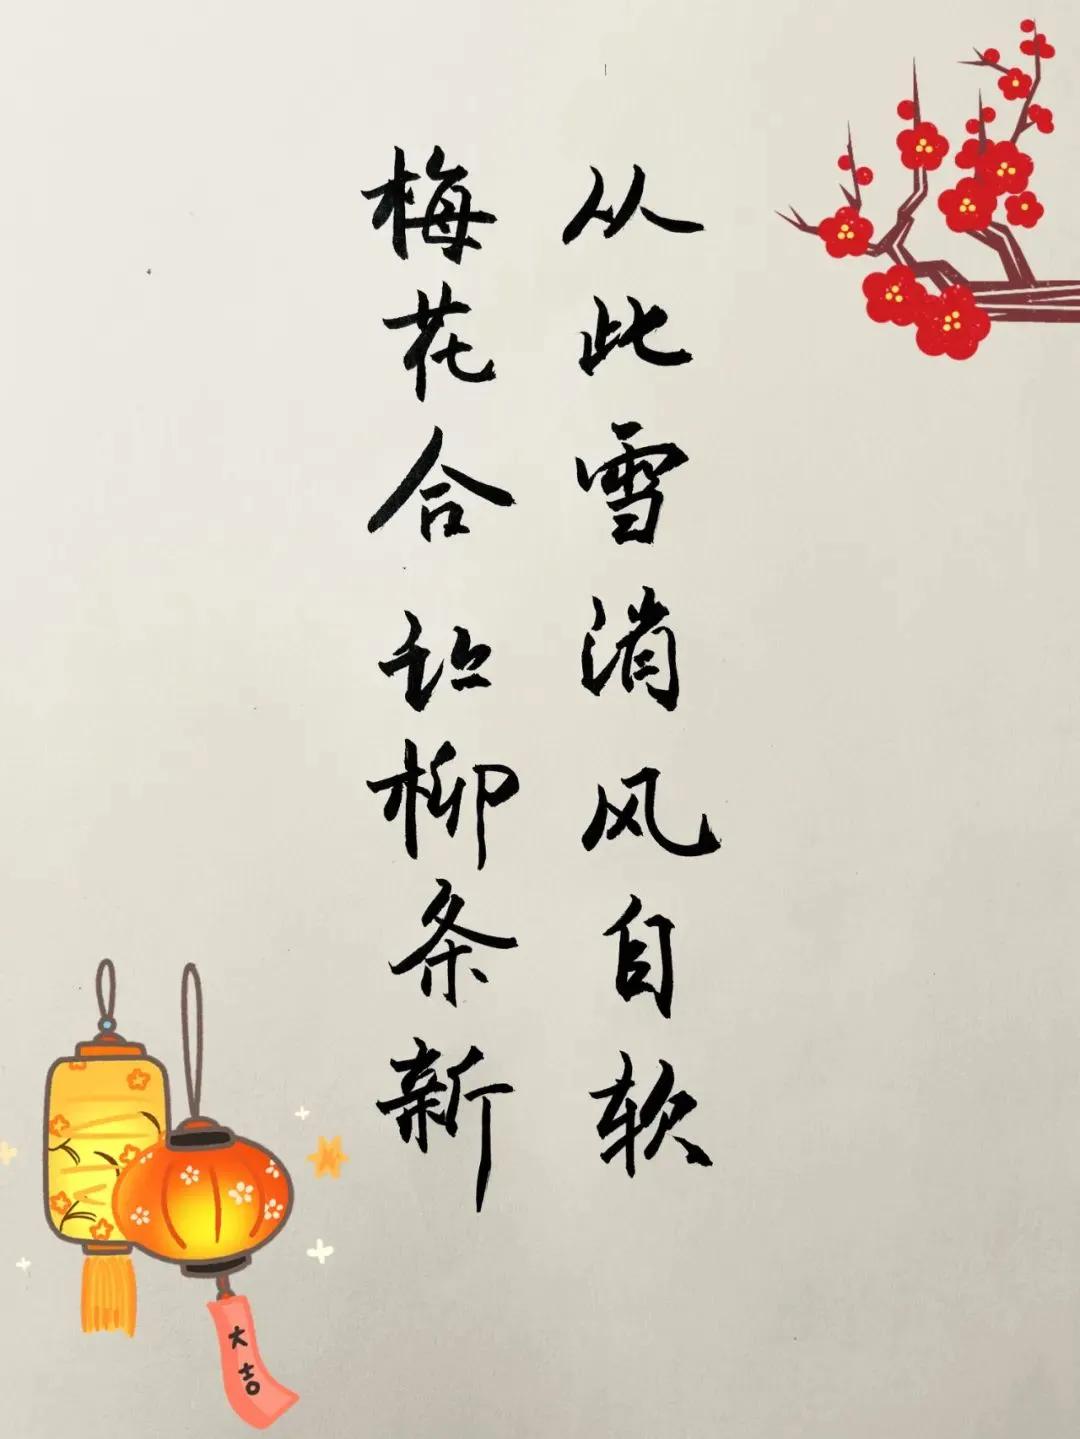 从此雪消风自软
梅花合让柳条新
大吉